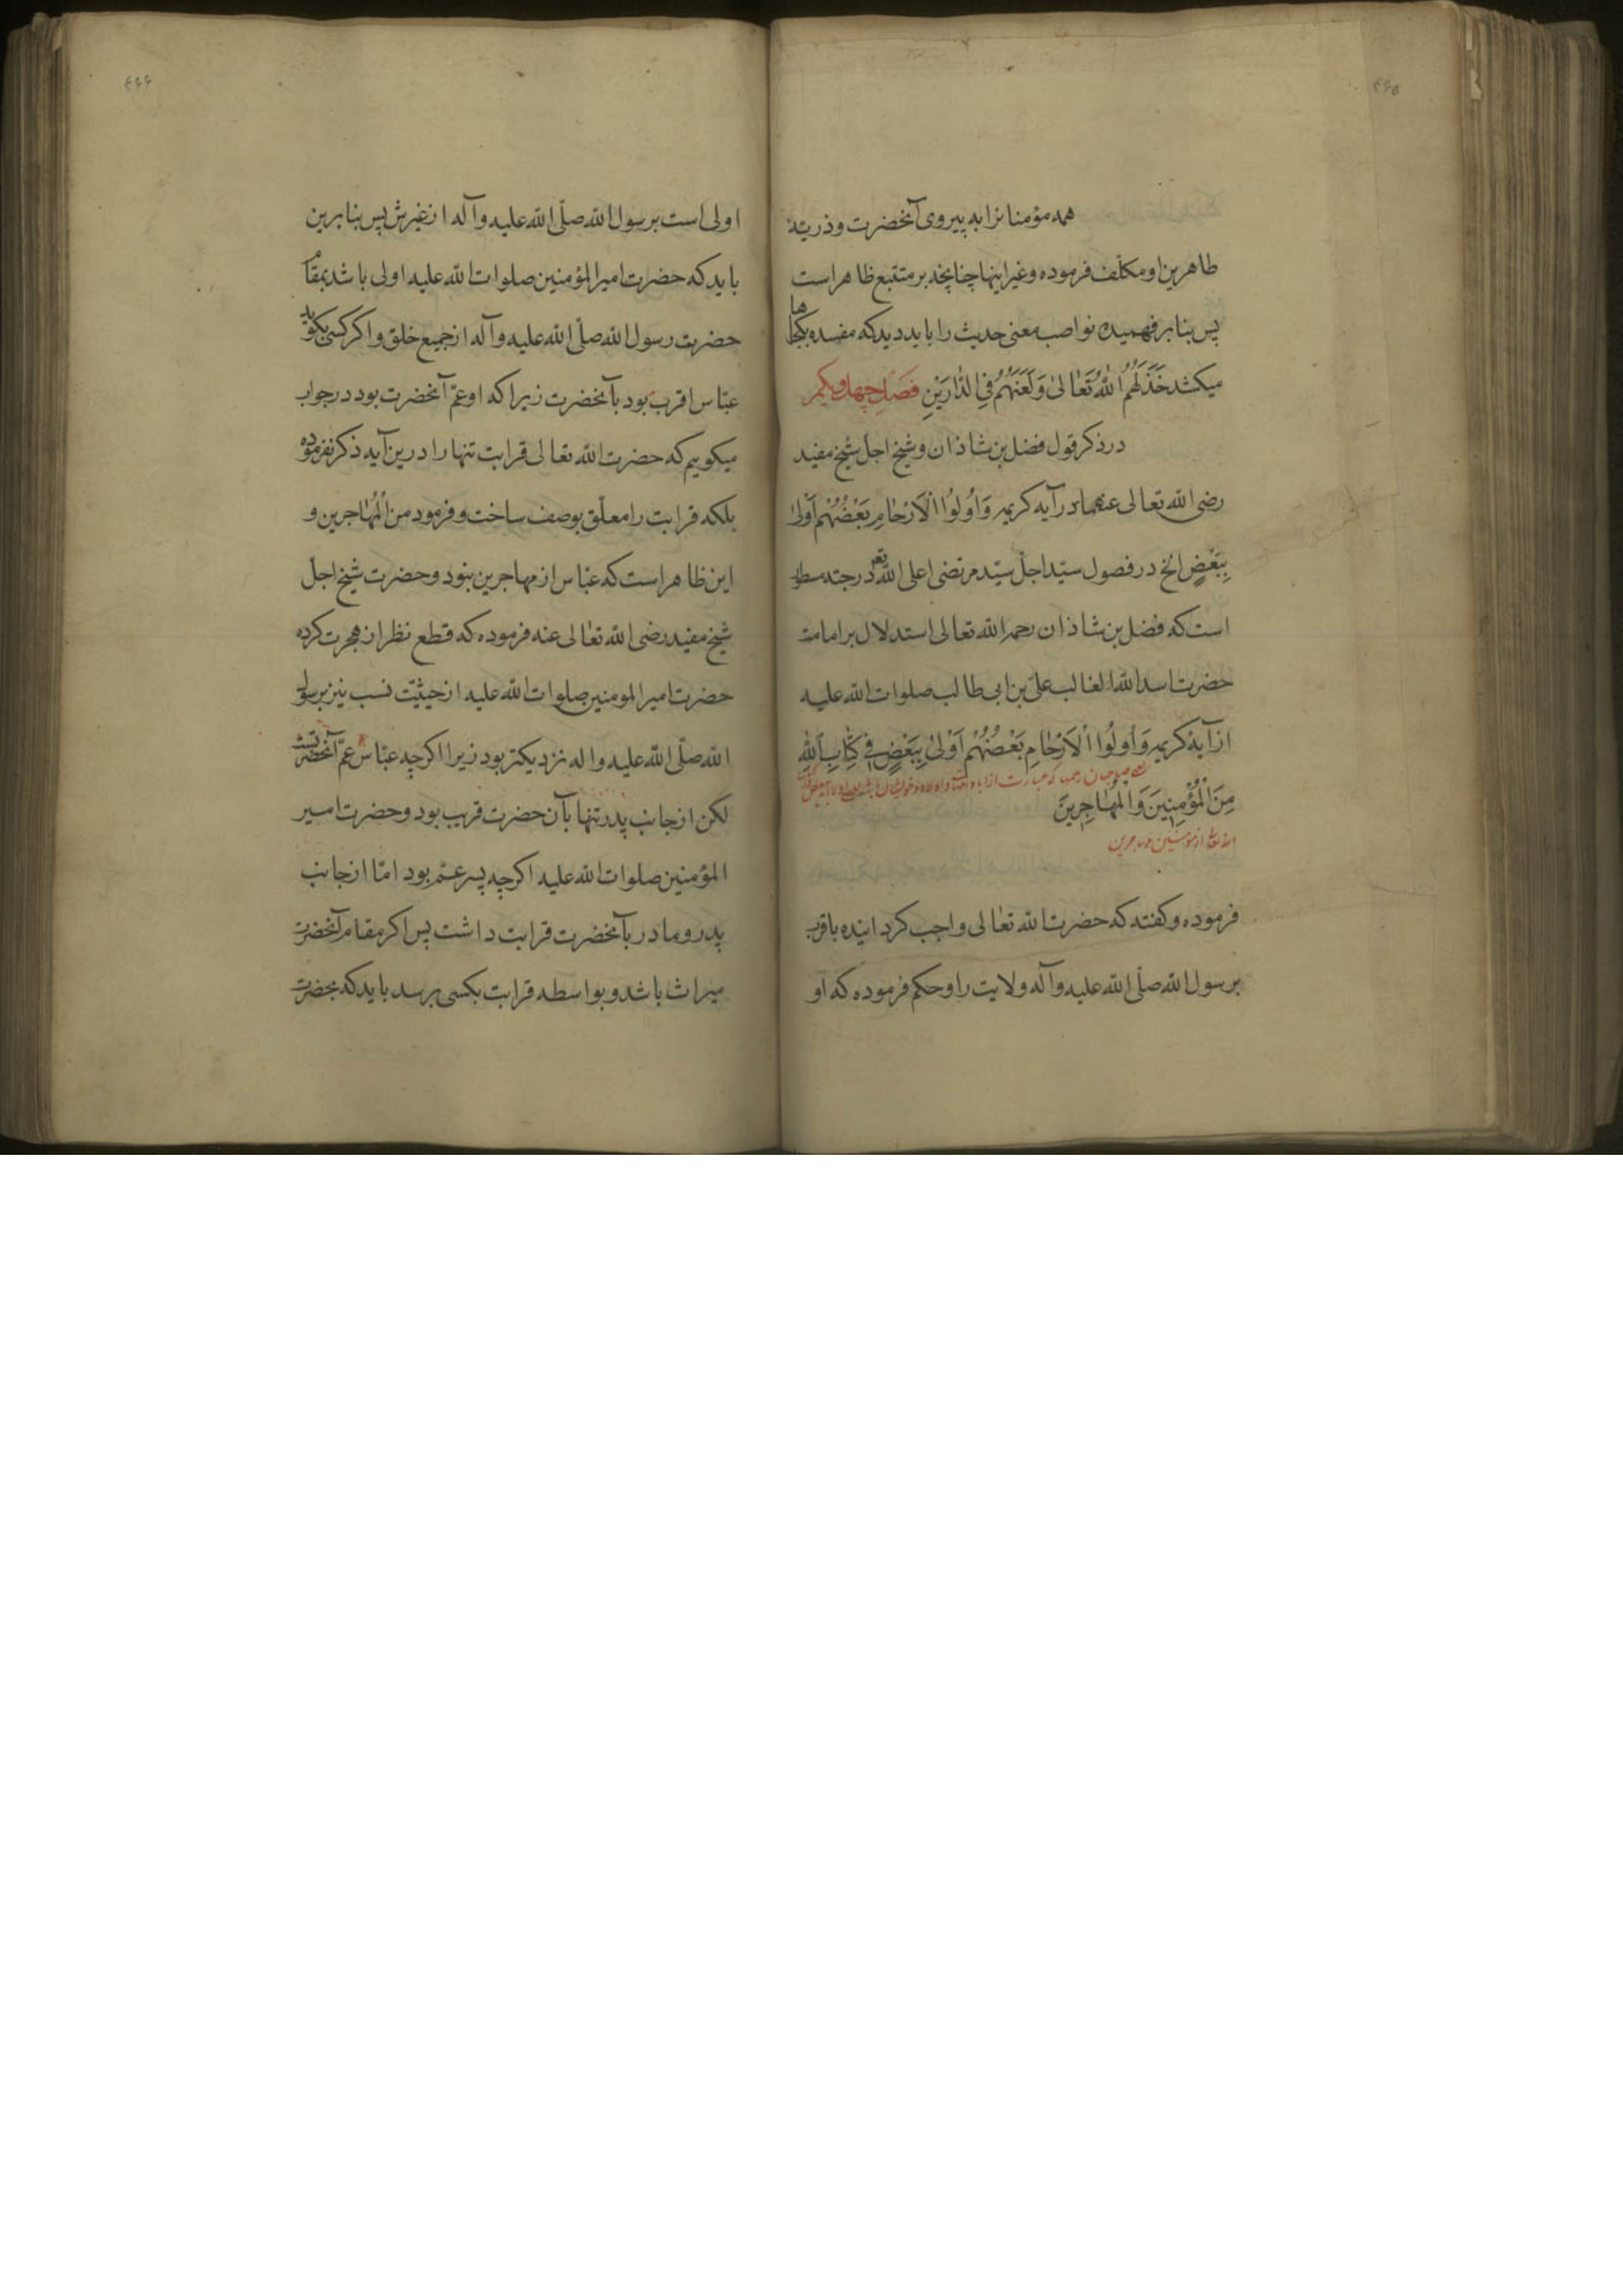 ۴۶۵
همه مؤمنانرا به پیروی آنحضرت و ذریّة
طاهرین او مکلّف فرموده و غیر اینها چنانچه بر متتبع ظاهر است
پس بنا بر فهمیده نواصب معنی حدیث را باید دید که مفسده بکجاها
میکشد خَذَلَهُمُ اللهُ تَعٰالىٰ وَلَعَنَهُمْ فِی الدّٰارَیْنِ فَصَلِ چهل ویکم
در ذکر قول فضل بن شاذان و شیخ اجل شیخ مفید
رضی الله تعالی عنهما در آیه کریمه وَاُولُوا الْاَرْحٰامِ بَعْضُهُمْ اَوْلیٰ
بِبَعْضٍ الخ در فصول سیّد اجلّ سیّد مرتضی اعلی الله تعـ درجته مسطور
است که فضل بن شاذان رحمه الله تعالی استدلال بر امامت
حضرت اسد الله الغالب علیّ بن ابی طالب صلوات الله علیه
از آیهٔ کریمه وَاُولُوا الْاَرْحٰامِ بَعْضُهُمْ اَوْلیٰ بِبَعْضٍ فی کِتٰابِ اللهِ
مِنَ الْمُؤْمِنِینَ وَالْمُهٰاجِرِینَ
الله تعالی از مؤمنین و مهاجرین
فرموده و کفته که حضرت الله تعٰالی واجب کردانیده باقرب
برسول الله صلّی الله علیه وآله ولایت را و حکم فرموده که او
۴۶۶
اولی است برسول الله صلّی الله علیه وآله از غیرش پس بنابرین
باید که حضرت امیر المؤمنین صلوات الله علیه اولی باشد بمقام
حضرت رسول الله صلّی الله علیه وآله از جمیع خلق و اکر کسی بکوید
عبّاس اقرب بود بآنحضرت زیرا که او عمّ آنحضرت بود در جواب
میکوییم که حضرت الله تعالی قرابت تنها را درین آیه ذکر نفرموده
بلکه قرابت را معلّق بوصف ساخت و فرمود من الْمُهٰاجرین و
این ظاهر است که عبّاس از مهاجرین نبود و حضرت شیخ اجلّ
شیخ مفید رضی الله تعٰالی عنه فرموده که قطع نظر از هجرت کرده
حضرت امیر المومنین صلوات الله علیه از حیثیّت نسب نیز برسول
الله صلّی الله علیه واله نزدیکتر بود زیرا اکرچه عبّاس عمّ آنحضرتست
لکن از جانب پدر تنها بآن حضرت قریب بود و حضرت امیر
المؤمنین صلوات الله علیه اکرچه پسر عم بود امّا از جانب
پدر و مادر بآنحضرت قرابت داشت پس اکر مقام آنحضرت
میراث باشد و بواسطه قرابت بکسی برسد باید که بحضرت